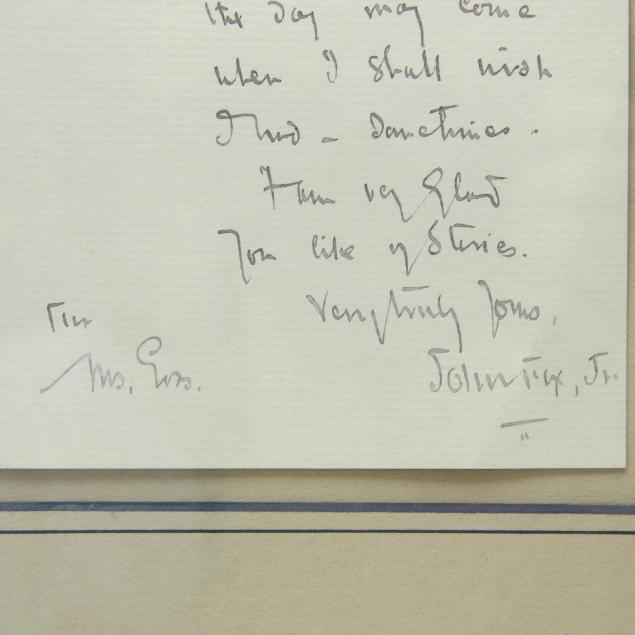 the day may come
when I shall wish
I had - sometimes.
I am very glad
you like my Stories.
Very truly Yours,
For
John Fox, Jr.
Mrs.